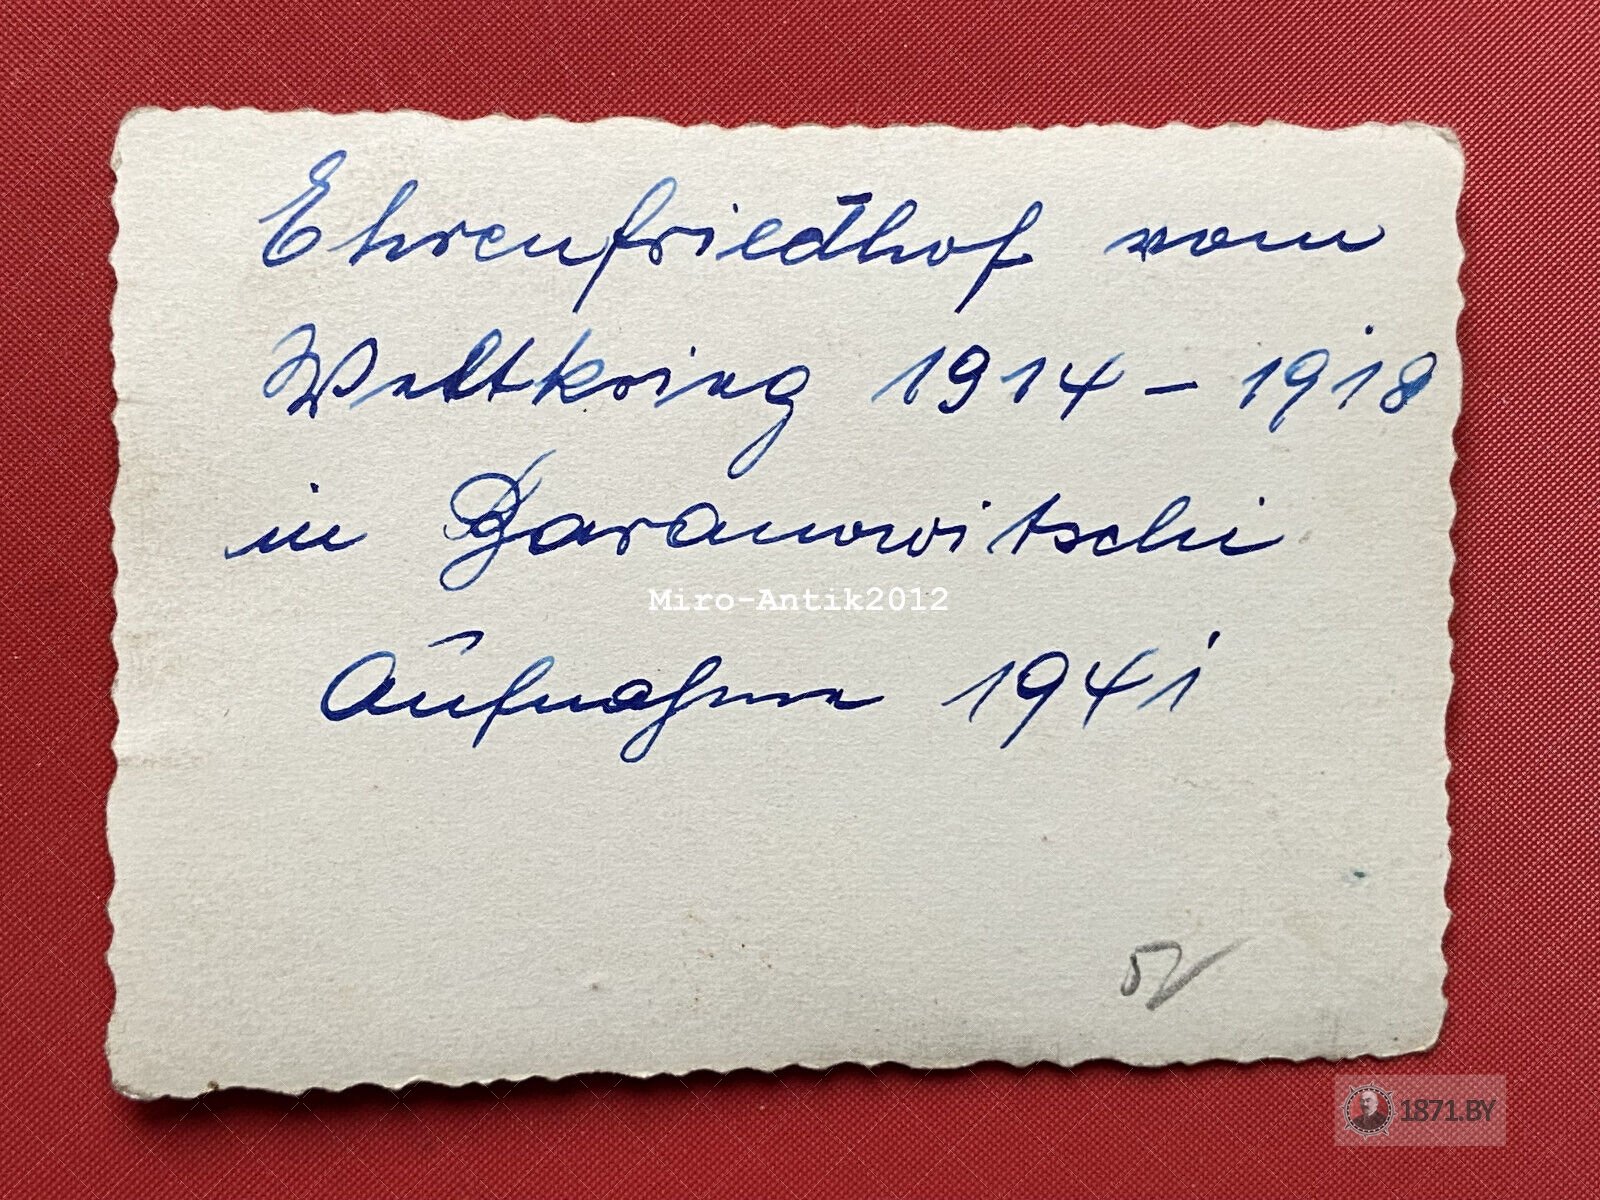 Ehrenfriedhof vom
Weltkrieg 1914 – 1918
in Baranowitschi
Miro-Antik2012
Aufnahme 1941
1871.BY